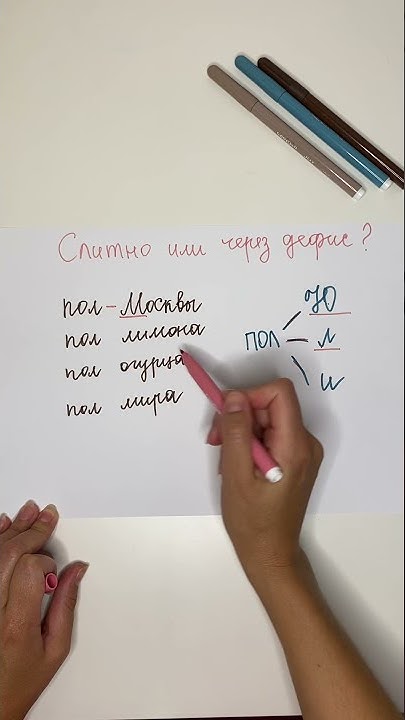 Слитно или через дефис?
пол - Москвы
пол лимона
пол огурца
пол мира
Ю
пол л
и